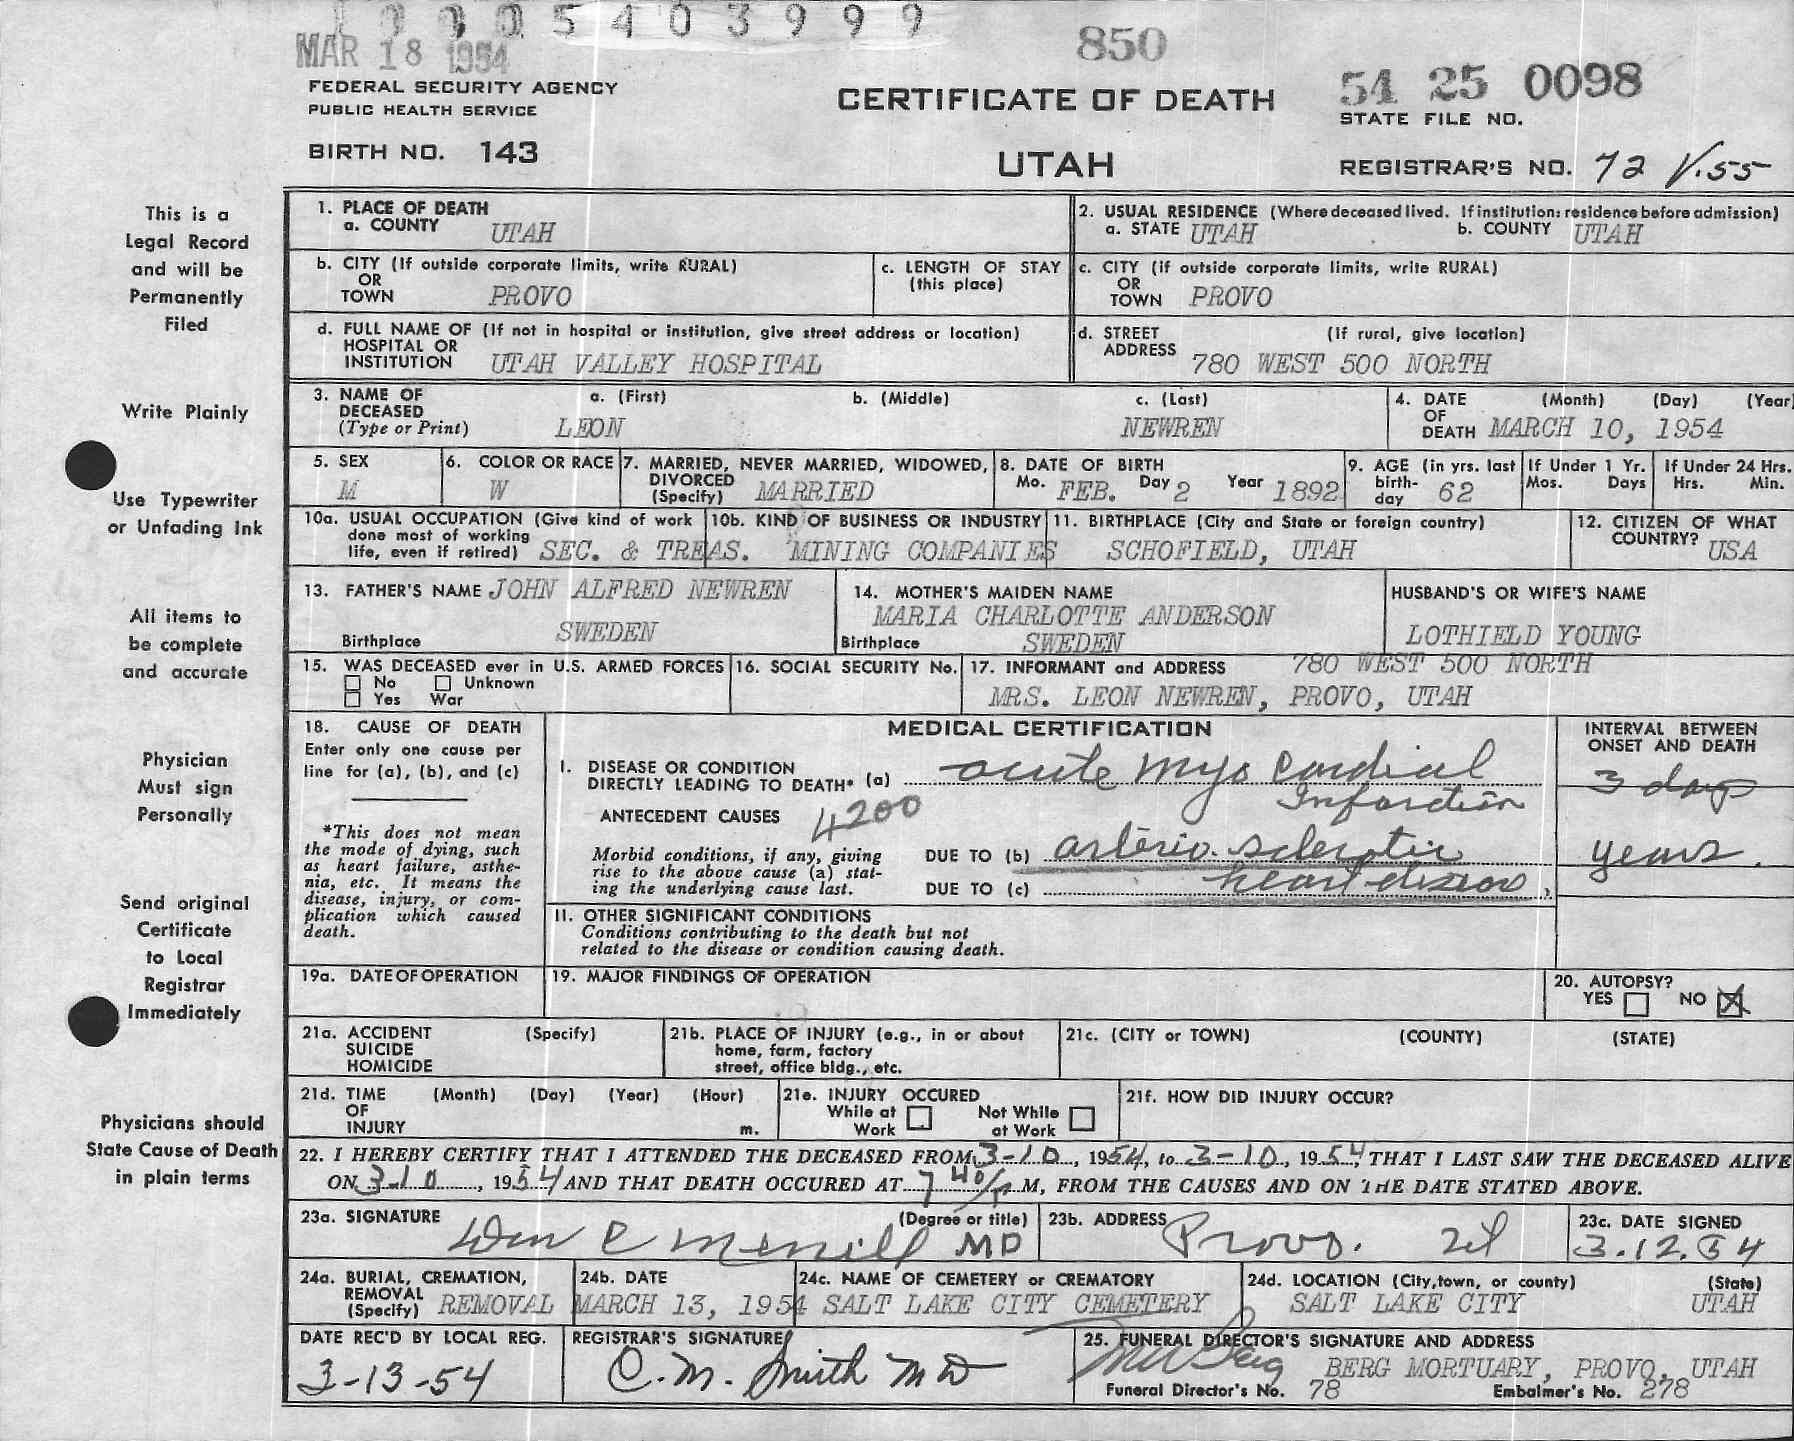 1 0 0 0 5 4 0 3 9 9 9
MAR 18 1954
850
54 25 0098
FEDERAL SECURITY AGENCY
PUBLIC HEALTH SERVICE
CERTIFICATE OF DEATH
STATE FILE NO.
BIRTH NO. 143
UTAH
REGISTRAR'S NO. 72 V.55
This is a
Legal Record
and will be
Permanently
Filed
Write Plainly
Use Typewriter
or Unfading Ink
All items to
be complete
and accurate
Physician
Must sign
Personally
Send original
Certificate
to Local
Registrar
Immediately
Physicians should
State Cause of Death
in plain terms
1. PLACE OF DEATH
a. COUNTY UTAH
2. USUAL RESIDENCE (Where deceased lived. If institution: residence before admission)
a. STATE UTAH b. COUNTY UTAH
b. CITY (If outside corporate limits, write RURAL)
OR
TOWN PROVO
c. LENGTH OF STAY
(this place)
c. CITY (if outside corporate limits, write RURAL)
OR
TOWN PROVO
d. FULL NAME OF (If not in hospital or institution, give street address or location)
HOSPITAL OR
INSTITUTION UTAH VALLEY HOSPITAL
d. STREET (If rural, give location)
ADDRESS 780 WEST 500 NORTH
3. NAME OF a. (First) b. (Middle) c. (Last)
DECEASED
(Type or Print) LEON NEWREN
4. DATE (Month) (Day) (Year)
OF
DEATH MARCH 10, 1954
5. SEX
M
6. COLOR OR RACE
W
7. MARRIED, NEVER MARRIED, WIDOWED,
DIVORCED
(Specify) MARRIED
8. DATE OF BIRTH
Mo. FEB. Day 2 Year 1892
9. AGE (in yrs. last
birth-
day 62
If Under 1 Yr.
Mos. Days
If Under 24 Hrs.
Hrs. Min.
10a. USUAL OCCUPATION (Give kind of work
done most of working
life, even if retired) SEC. & TREAS.
10b. KIND OF BUSINESS OR INDUSTRY
MINING COMPANIES
11. BIRTHPLACE (City and State or foreign country)
SCHOFIELD, UTAH
12. CITIZEN OF WHAT
COUNTRY? USA
13. FATHER'S NAME JOHN ALFRED NEWREN
Birthplace SWEDEN
14. MOTHER'S MAIDEN NAME
MARIA CHARLOTTE ANDERSON
Birthplace SWEDEN
HUSBAND'S OR WIFE'S NAME
LOTHIELD YOUNG
15. WAS DECEASED ever in U.S. ARMED FORCES
No Unknown
Yes War
16. SOCIAL SECURITY No.
17. INFORMANT and ADDRESS 780 WEST 500 NORTH
MRS. LEON NEWREN, PROVO, UTAH
18. CAUSE OF DEATH
Enter only one cause per
line for (a), (b), and (c)
*This does not mean
the mode of dying, such
as heart failure, asthe-
nia, etc. It means the
disease, injury, or com-
plication which caused
death.
MEDICAL CERTIFICATION
INTERVAL BETWEEN
ONSET AND DEATH
I. DISEASE OR CONDITION
DIRECTLY LEADING TO DEATH* (a) acute myo cardial
Infarction
3 days
ANTECEDENT CAUSES 4200
Morbid conditions, if any, giving
rise to the above cause (a) stat-
ing the underlying cause last.
DUE TO (b) arterio-sclerotic
years.
DUE TO (c) heart disease
II. OTHER SIGNIFICANT CONDITIONS
Conditions contributing to the death but not
related to the disease or condition causing death.
19a. DATE OF OPERATION
19. MAJOR FINDINGS OF OPERATION
20. AUTOPSY?
YES NO X
21a. ACCIDENT (Specify)
SUICIDE
HOMICIDE
21b. PLACE OF INJURY (e.g., in or about
home, farm, factory
street, office bldg., etc.
21c. (CITY or TOWN) (COUNTY) (STATE)
21d. TIME (Month) (Day) (Year) (Hour)
OF
INJURY m.
21e. INJURY OCCURED
While at Not While
Work at Work
21f. HOW DID INJURY OCCUR?
22. I HEREBY CERTIFY THAT I ATTENDED THE DECEASED FROM 3-10, 1954, to 3-10, 1954, THAT I LAST SAW THE DECEASED ALIVE
ON 3-10, 1954 AND THAT DEATH OCCURED AT 7 40/P M, FROM THE CAUSES AND ON THE DATE STATED ABOVE.
23a. SIGNATURE (Degree or title)
Wm C Merrill MD
23b. ADDRESS
Provo. Ut
23c. DATE SIGNED
3.12.54
24a. BURIAL, CREMATION,
REMOVAL
(Specify) REMOVAL
24b. DATE
MARCH 13, 1954
24c. NAME OF CEMETERY or CREMATORY
SALT LAKE CITY CEMETERY
24d. LOCATION (City, town, or county) (State)
SALT LAKE CITY UTAH
DATE REC'D BY LOCAL REG.
3-13-54
REGISTRAR'S SIGNATURE
C. M. Smith MD
25. FUNERAL DIRECTOR'S SIGNATURE AND ADDRESS
Berg BERG MORTUARY, PROVO, UTAH
Funeral Director's No. 78 Embalmer's No. 278